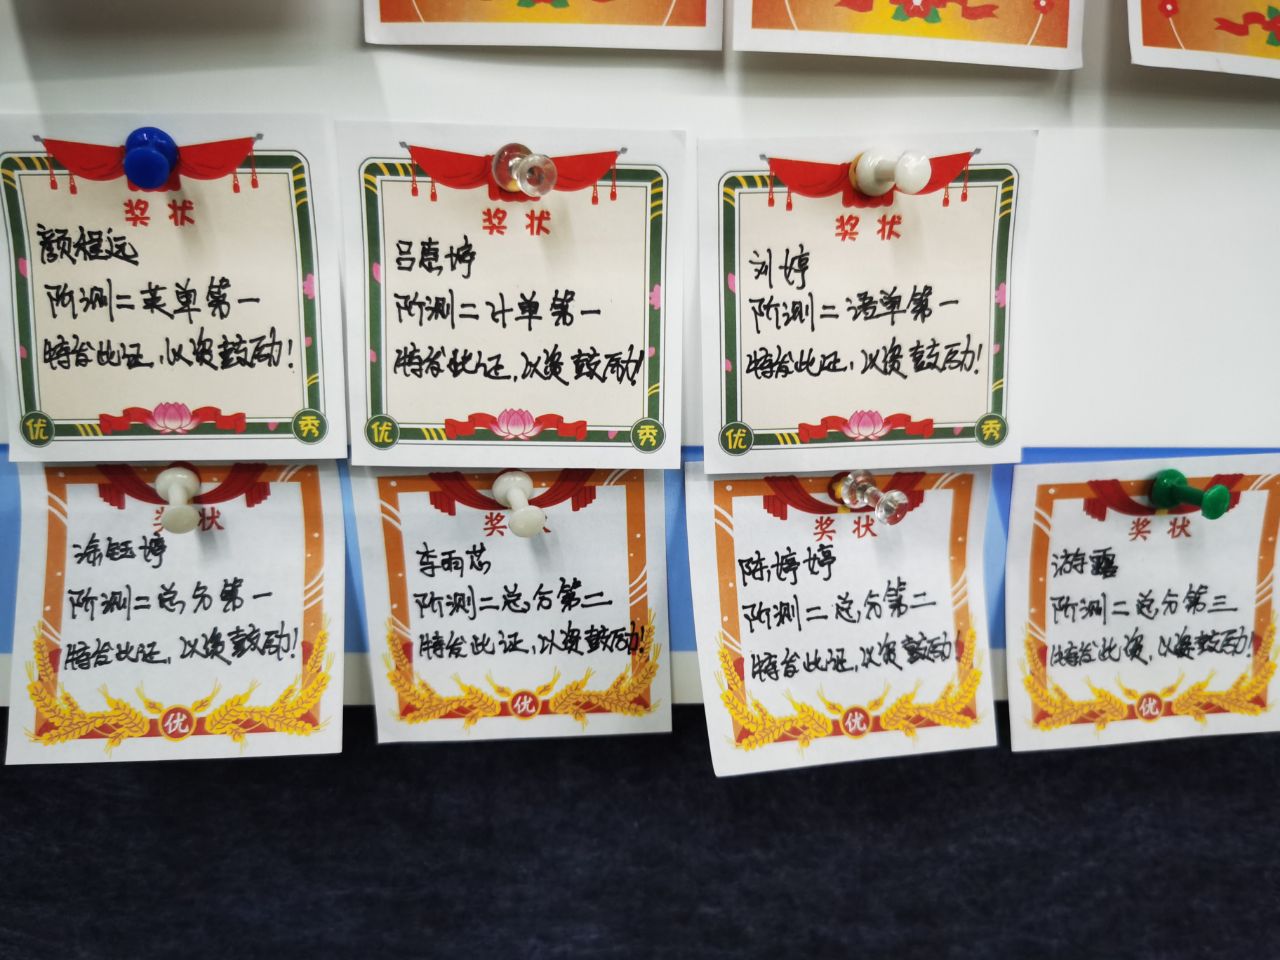 奖状
颜程远
阶测二英单第一
特发此证，以资鼓励！
优 秀
奖状
吕惠婷
阶测二计单第一
特发此证，以资鼓励！
优 秀
奖状
刘婷
阶测二语单第一
特发此证，以资鼓励！
优 秀
奖状
涂钰婷
阶测二总分第一
特发此证，以资鼓励！
优
奖状
李雨芯
阶测二总分第二
特发此证，以资鼓励！
优
奖状
陈婷婷
阶测二总分第二
特发此证，以资鼓励！
优
奖状
游露
阶测二总分第三
特发此资，以资鼓励！
优